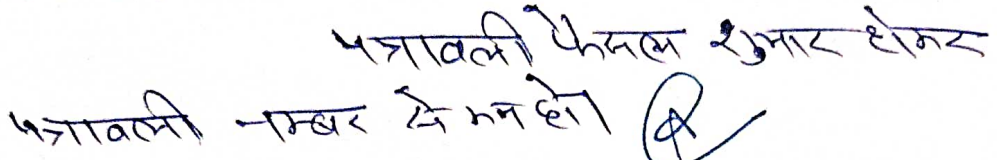 पत्रावली फैसल शुमार होकर
पत्रावली नम्बर से कम हो।